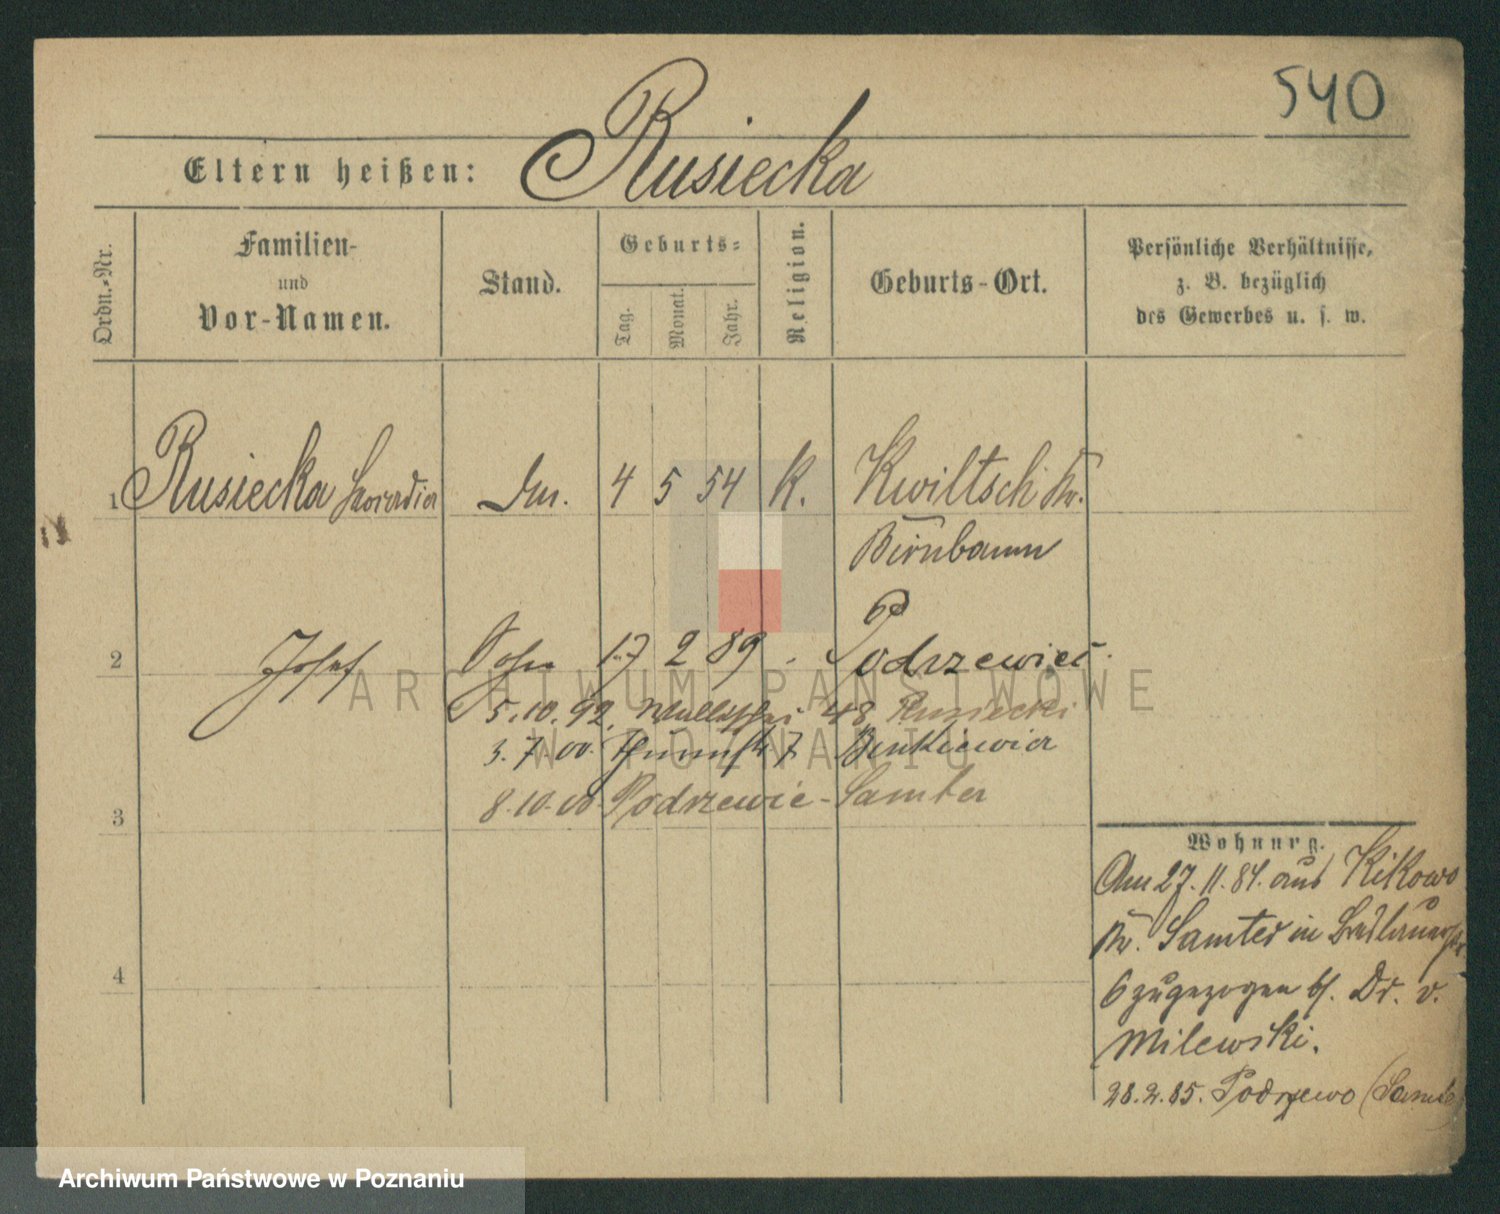 540
Eltern heißen: Rusiecka
Ordn.-Nr.
Familien-
und
Vor-Namen.
Stand.
Geburts-
Tag.
Monat.
Jahr.
Religion.
Geburts-Ort.
Persönliche Verhältnisse,
z. B. bezüglich
des Gewerbes u. s. w.
1 Rusiecka 4 5 54 K. Kwiltsch Kr.
Birnbaum
2 Josef Sohn 17 2 89 Podrzewie
5.10.92. 48 Rusiecki
3.7.00. 47
8.10.00. Podrzewie - Samter
3
Wohnung.
Am 27.11.84. aus Kikowo
Kr. Samter in
6 zugezogen b/. Dr. v.
Milewski.
28.2.85. Podrzewo (Samte
4
ARCHIWUM PAŃSTWOWE
W POZNANIU
Archiwum Państwowe w Poznaniu